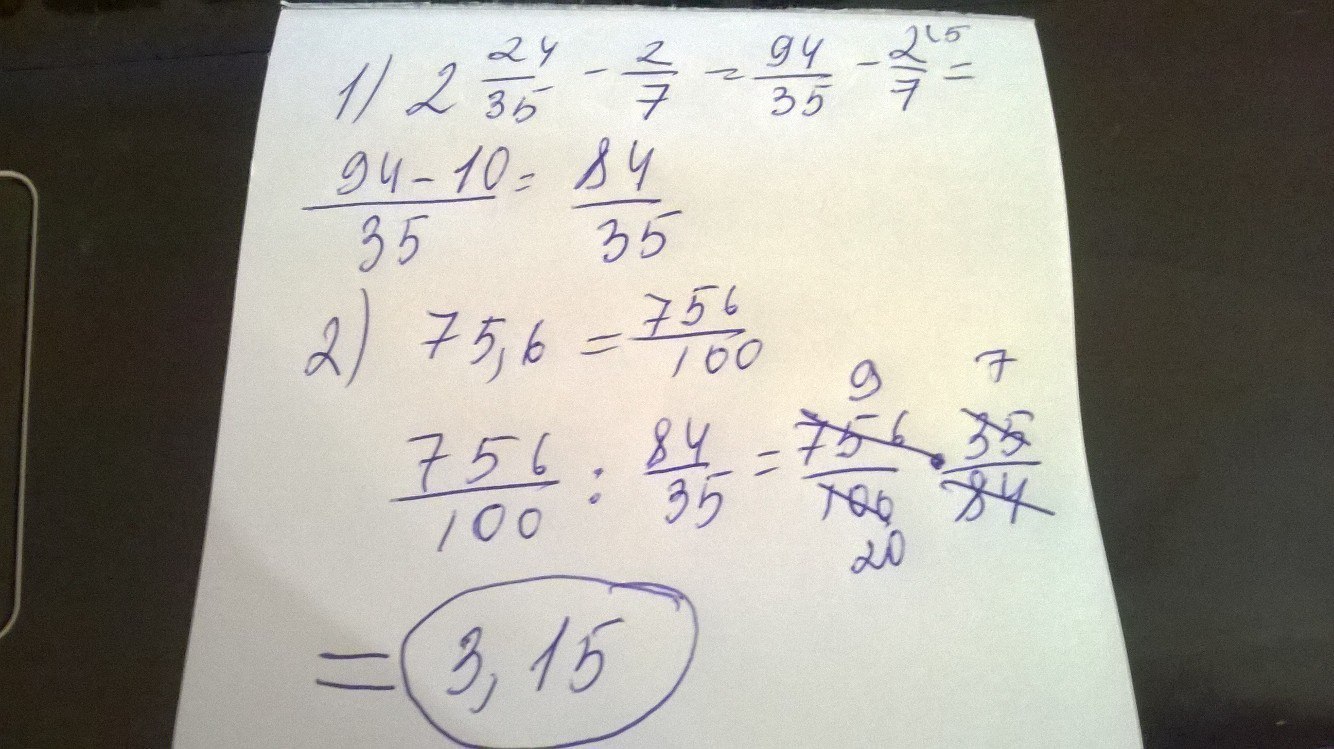 1) 2 24/35 - 2/7 = 94/35 - 2(5/7 =
94-10/35 = 84/35
2) 75,6 = 756/100
9 7
756/100 : 84/35 = 756/100 · 35/84
20
= 3,15